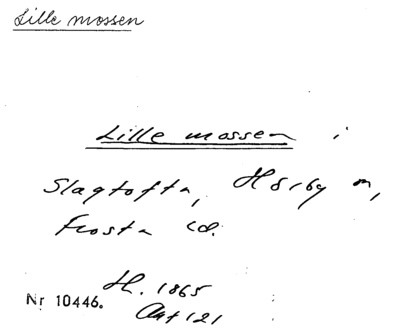 Lille mossen
Lille mossen i
Slagtofta, Hörby sn,
Frosta hd.
H. 1865
Nr 10446.
Akt 121